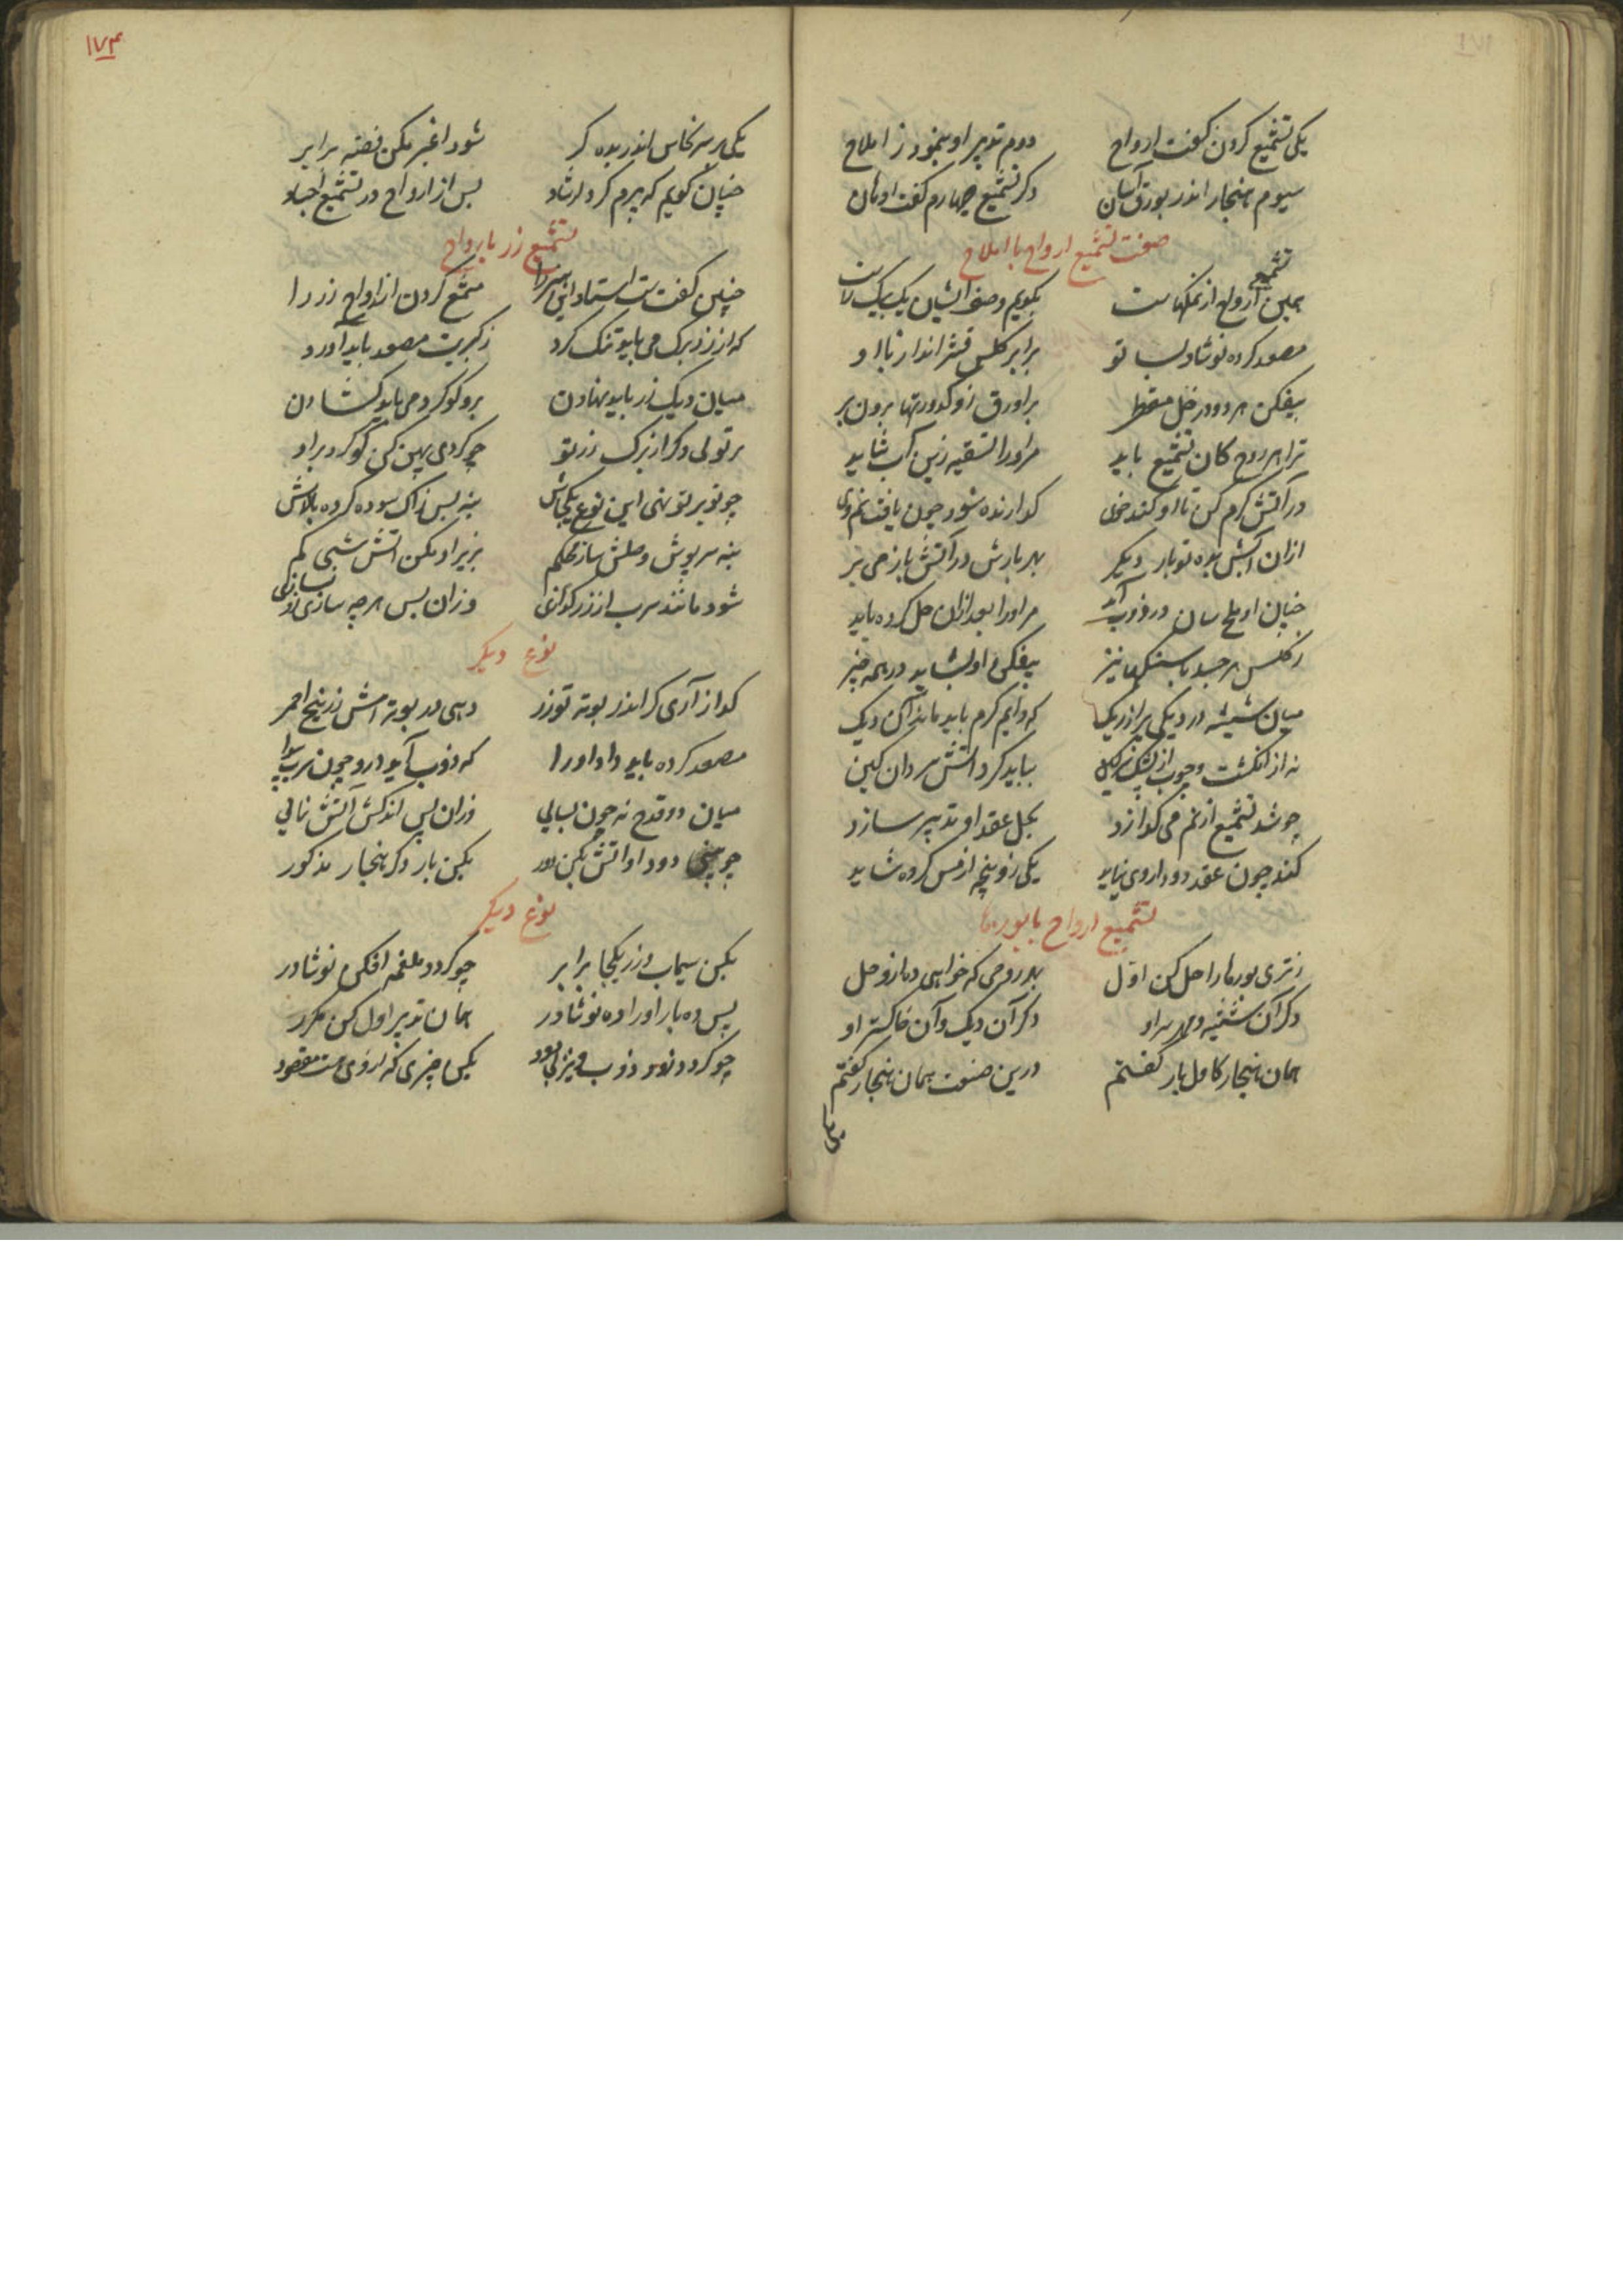 ۱۷۴
یکی تشمیع کردن گفت ارواح دوم تدبیر او بنمود ز املاح
سیوم هنجار اندر بورق آسان دکر تشمیع چهارم گفت اوهان
صفت تشمیع ارواح با املاح
همین تشمیع ارواح از نمکهاست بکویم وصف ایشان یک بیک راست
مصعد کرده نوشادر بسا تو برابر کلس قشر اندار باا و
بیفکن هر دو در خل مقطر براورق زو کدورتها برون بر
ترا هر روح کان تشمیع باید مراورا تسقیه زین آب شاید
در آتش کرم کن تا او کند خوی کدازنده شود چون یافت نم وی
ازان آبش بده تو بار دیکر بهر بارش در آتش باز می بر
چنان او ملح سان در ذوب آید مراورا بعد ازان حل کرده باید
ز کلس هر جسد با سنکها نیز بیفکن او بشاید در همه چیز
میان شیشه در دیکی پر از ریک که دایم کرم باید ماند آن دیک
نه از انکشت و چوب از پشک سرکین بباید کرد آتش مردان کین
چو شد تشمیع از نم می کدازد بحل عقد او تدبیر سازد
کند چون عقد دو داروی نیاید یکی زو پنچه از مس کرده شاید
تشمیع ارواح با بورها
ز تری بورها را حل کن اول بهر روحی که خواهی ده ازو حل
دکر آن شیشه و سر او دکر آن دیک و آن خاکستر او
همان هنجار کامل بار کفتم درین صنعت همان هنجار کفتم
یکی بر سر نحاس اندر بده کر شود اغبر بکن فضه برابر
چنان کویم که پیرم کرد ارشاد پس از ارواح در تشمیع اجساد
تشمیع زر بارواح
چنین کفت ست استاد این مشمع کردن از ارواح زر را
که از زر برک می باید تنک کرد ز کبریت مصعد باید آورد
میان دیک زر باید نهادن برو کوکرد می باید کشادن
بر تولی دکر از برک زر تو چو کردی پهن کن کوکرد بر او
چو تو بر تو نهی این نوع یکجاش بنه پس زاک سوده کرده بالاش
بنه سرپوش و وصلش ساز محکم بزیر او بکن آتش شبی کم
شود مانند سرب از زر کدازی وزان پس هر چه سازی زو بسازی
نوع دیکر
کداز آری کر اندر بوته تو زر دهی در بوته امش زرنیخ احمر
مصعد کرده باید داد او را که ذوب آید درو چون سرب
میان دو قدح نه چون بسایی وزان پس اندکش آتش نمایی
چو بینی دود او آتش بکن دور بکن بار دکر هنجار مذکور
نوع دیکر
بکن سیماب و زر یکجا برابر چو کردد ملغمه افکن نوشادر
پس ده بار او را ده نوشادر همان تدبیر اول کن مکرر
چو کردد ذوب بود بکن چیزی که از وی هست مقصود